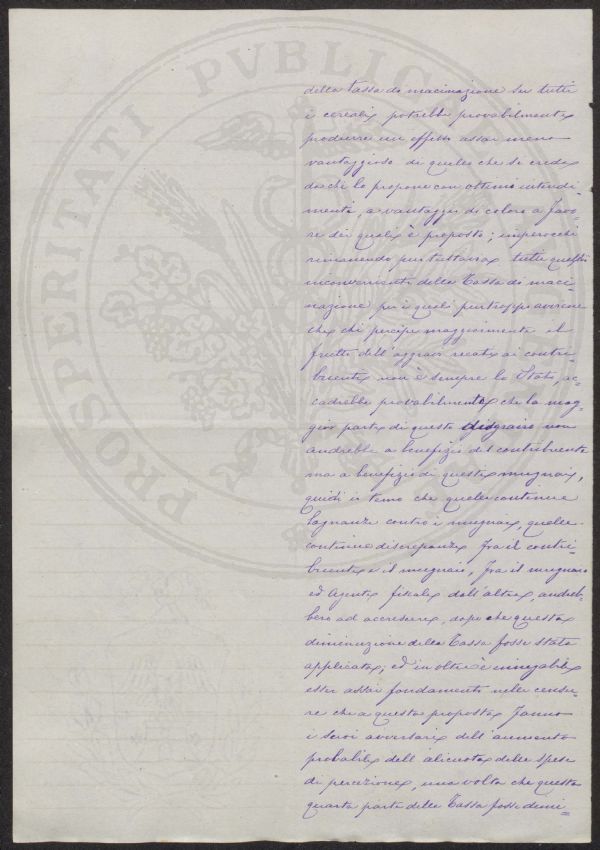 PROSPERITATI PVBLICAE
della tassa di macinazione su tutti
i cereali, potrebbe provabilmente
produrre un effetto assai meno
vantaggioso di quello che si crede
da chi lo propone con ottimo intendi-
mento, a vantaggio di coloro a favo-
re dei quali è proposto; imperocchè
rimanendo pur tuttavia tutti quegli
inconvenienti della Tassa di maci-
nazione per i quali purtroppo avviene
che chi percipe maggiormente il
frutto dell'aggravio recato ai contri-
buenti non è sempre lo Stato, ac-
cadrebbe provabilmente che la mag-
gior parte di questo disgravio non
andrebbe a benefizio del contribuente
ma a benefizio di questi mugnai,
quindi io temo che quelle continue
lagnanze contro i mugnai, quelle
continue discrepanze fra il contri-
buente e il mugnaio, fra il mugnaio
ed Agenti fiscali dall'altra, andreb-
bero ad accrescere, dopo che questa
diminuzione della Tassa fosse stata
applicata; ed in oltre è innegabile
esser assai fondamento nelle censu-
re che a questa proposta fanno
i suoi avversari dell'aumento
probabile dell'aliquota delle spese
di percezione, una volta che questa
quarta parte della Tassa fosse dimi-